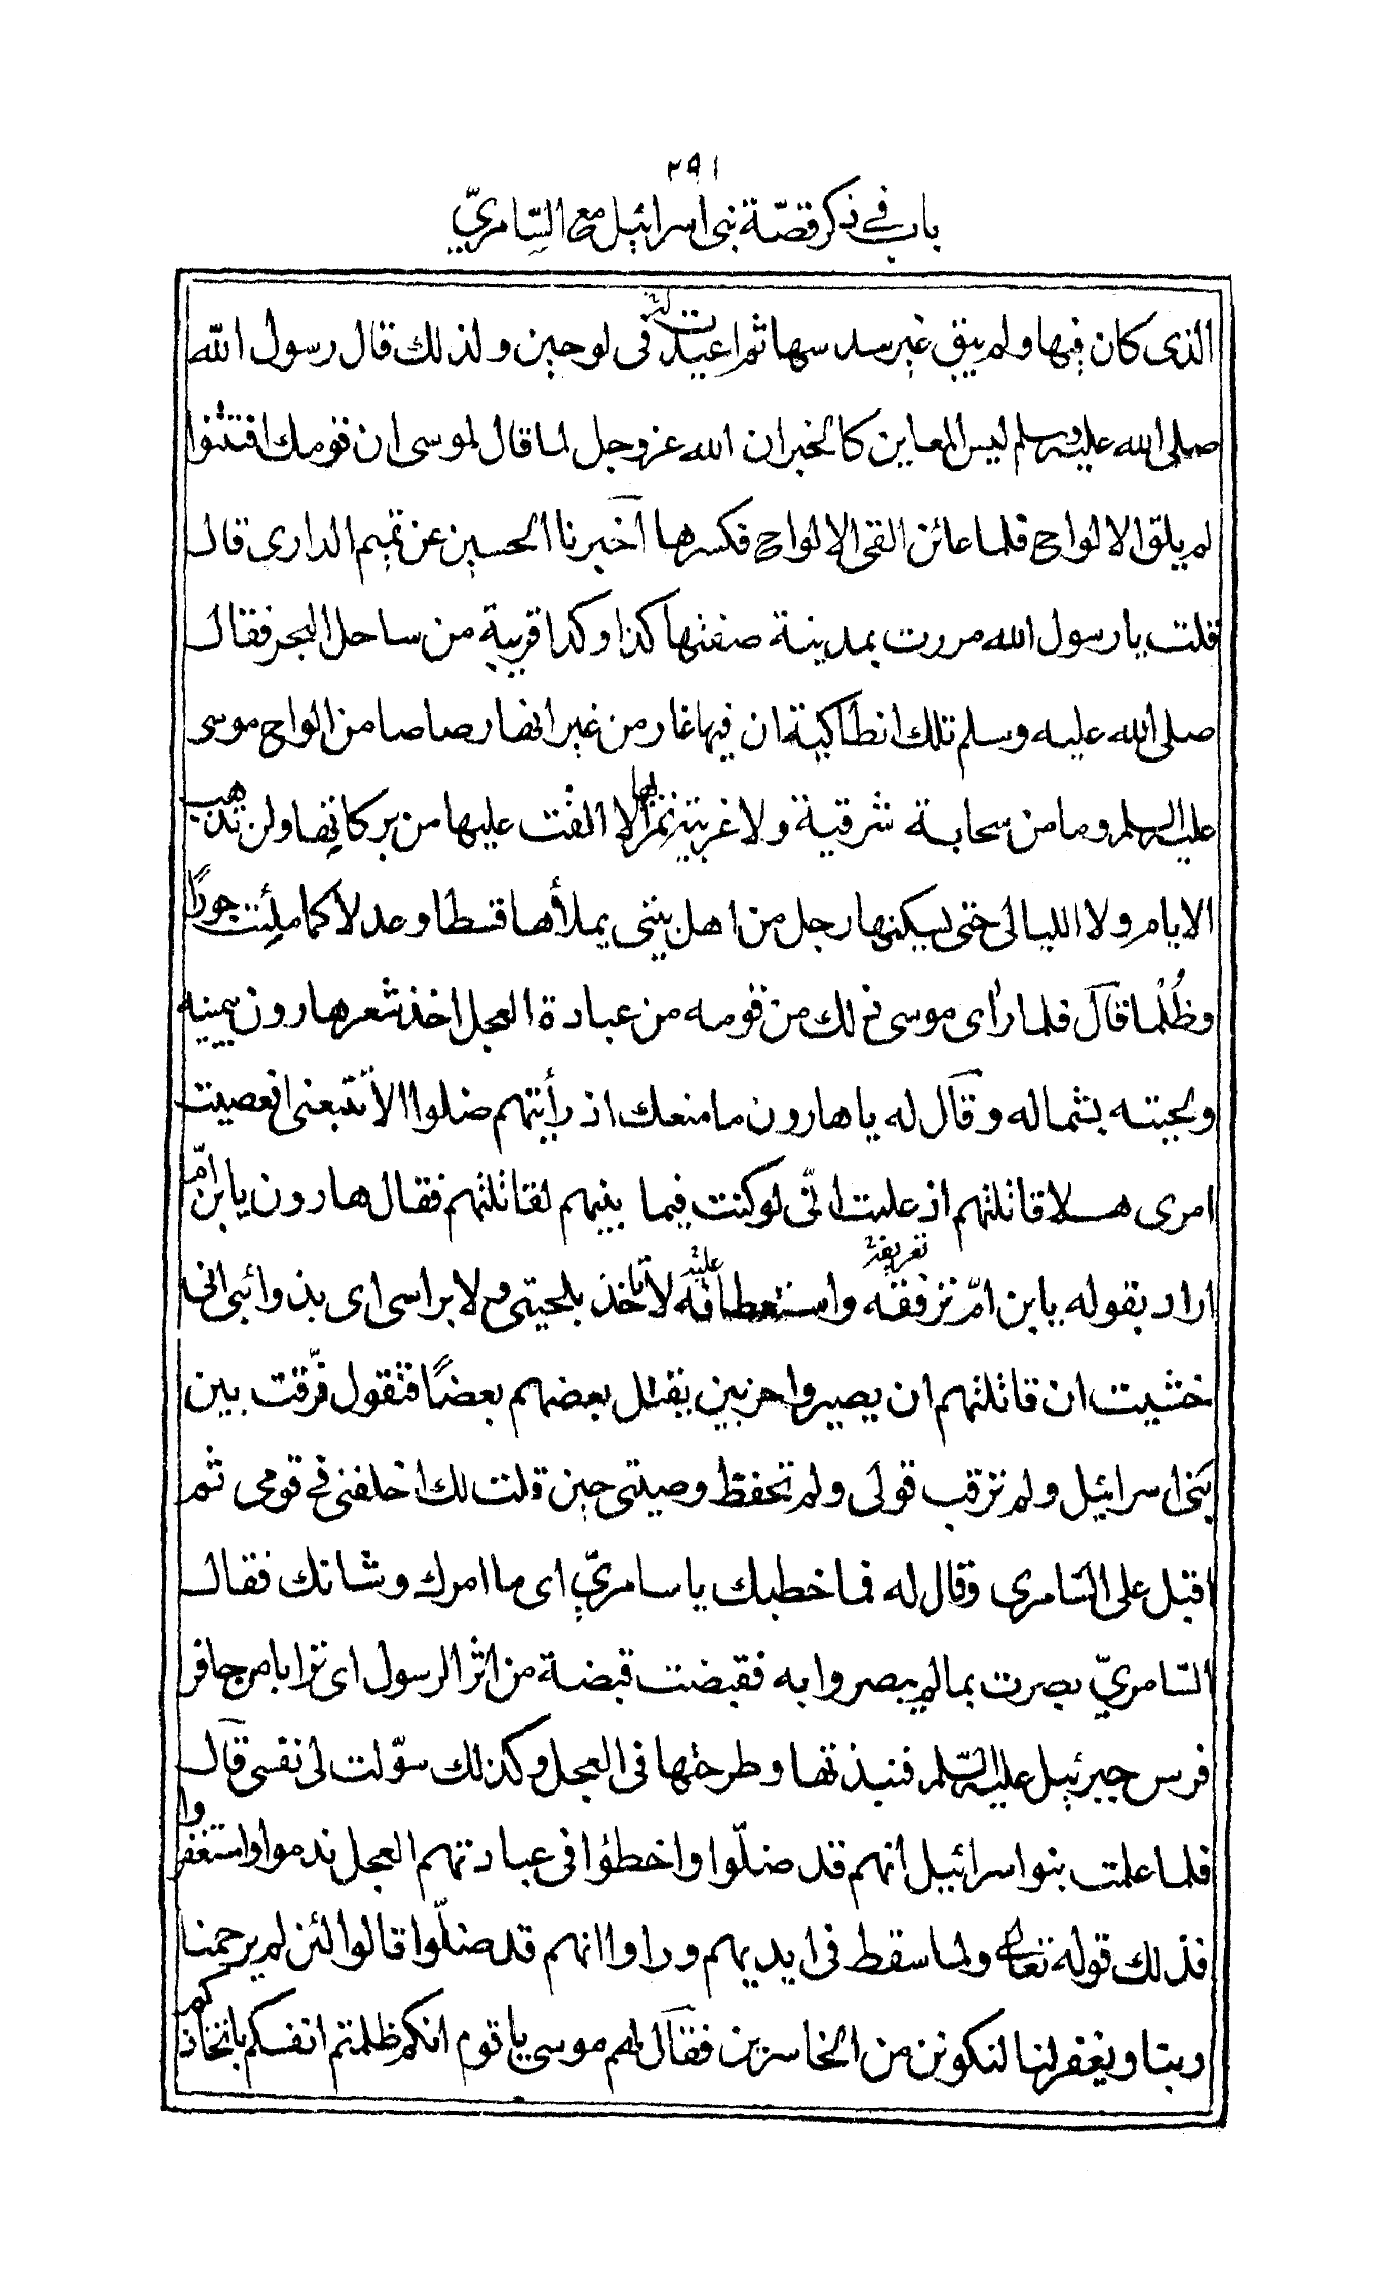 ٢٩١
باب في ذكر قصّة بنى اسرائيل مع السّامريّ
الذى كان فيها ولم يبق غير سدسها ثم اعيدت له فى لوحين ولذلك قال رسول الله
صلى الله عليه وسلم ليس المعاين كالخبر ان الله عز وجل لما قال لموسى ان قومك افتتنوا
لم يلق الالواح فلما عائن القى الالواح فكسرها آخبرنا الحسين عن تميم الدارى قال
قلت يا رسول الله مررت بمدينة صفتها كذا وكذا قريبة من ساحل البحر فقال
صلى الله عليه وسلم تلك انطاكية ان فيها غار من غير انها رصاصا من الواح موسى
عليه السلم وما من سحابة شرقية ولا غربية تمر بها الا القت عليها من بركاتها ولن تذهب
الايام ولا الليالى حتى يسكنها رجل من اهل بيتى يملأها قسطا وعدلا كما ملئت جورًا
وظُلْما قآل فلما رأى موسى ذلك من قومه من عبادة العجل اخذ شعر هارون بيمينه
ولحيته بشماله وقآل له يا هارون ما منعك اذ رأيتهم ضلوا الا تتبعنى افعصيت
امرى هلا قاتلتهم اذ علمت انّى لو كنت فيما بينهم لقاتلتهم فقال هارون يا ابن امّ
اراد بقوله يا بن امّ ترفقه واستعطافه عليه لا تاخذ بلحيتى ولا براسى اى بذوائبى انى
خشيت ان قاتلتهم ان يصيروا حزبين يقتل بعضهم بعضًا فتقول فرّقت بين
بَنى اسرائيل ولم ترقب قولى ولم تحفظ وصيتى حين قلت لك اخلفنى فى قومى ثم
اقبل على السّامرى وقال له فما خطبك يا سامريّ اى ما امرك وشانك فقال
السّامريّ بصرت بما لم يبصروا به فقبضت قبضة من اثر الرسول اى ترابا من حافر
فرس جبرئيل عليه السّلم فنبذتها وطرحتها فى العجل وكذلك سوّلت لى نفسى قآل
فلما علمت بنو اسرائيل انهم قد ضلّوا واخطؤا فى عبادتهم العجل ندموا واستغفروا
فذلك قوله تعالى ولما سقط فى ايديهم وراوا انهم قد ضلّوا قالوا لئن لم يرحمنا
ربنا ويغفر لنا لنكونن من الخاسرين فقآل لهم موسى يا قوم انكم ظلمتم انفسكم باتخاذكم